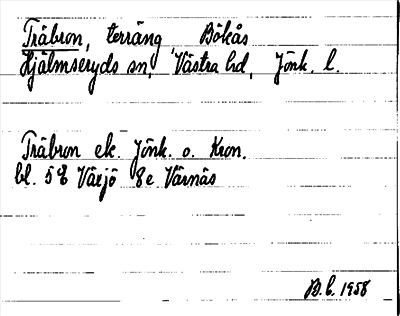 Träbron, terräng Bökås
Hjälmseryds sn, Västra hd, Jönk. l.
Träbron ek. Jönk. o. Kron.
bl. 5E Växjö 8e Värnäs
B.b. 1958